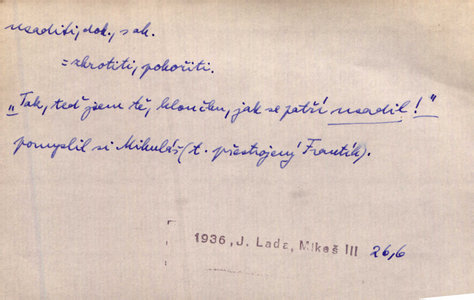 usaditi, dok., sak.
= zkrotiti, pokořiti.
„Tak, teď jsem tě, kloučku, jak se patří usadil!"
pomyslil si Mikuláš (t. přestrojený Frantík).
1936, J. Lada, Mikeš III 26,6